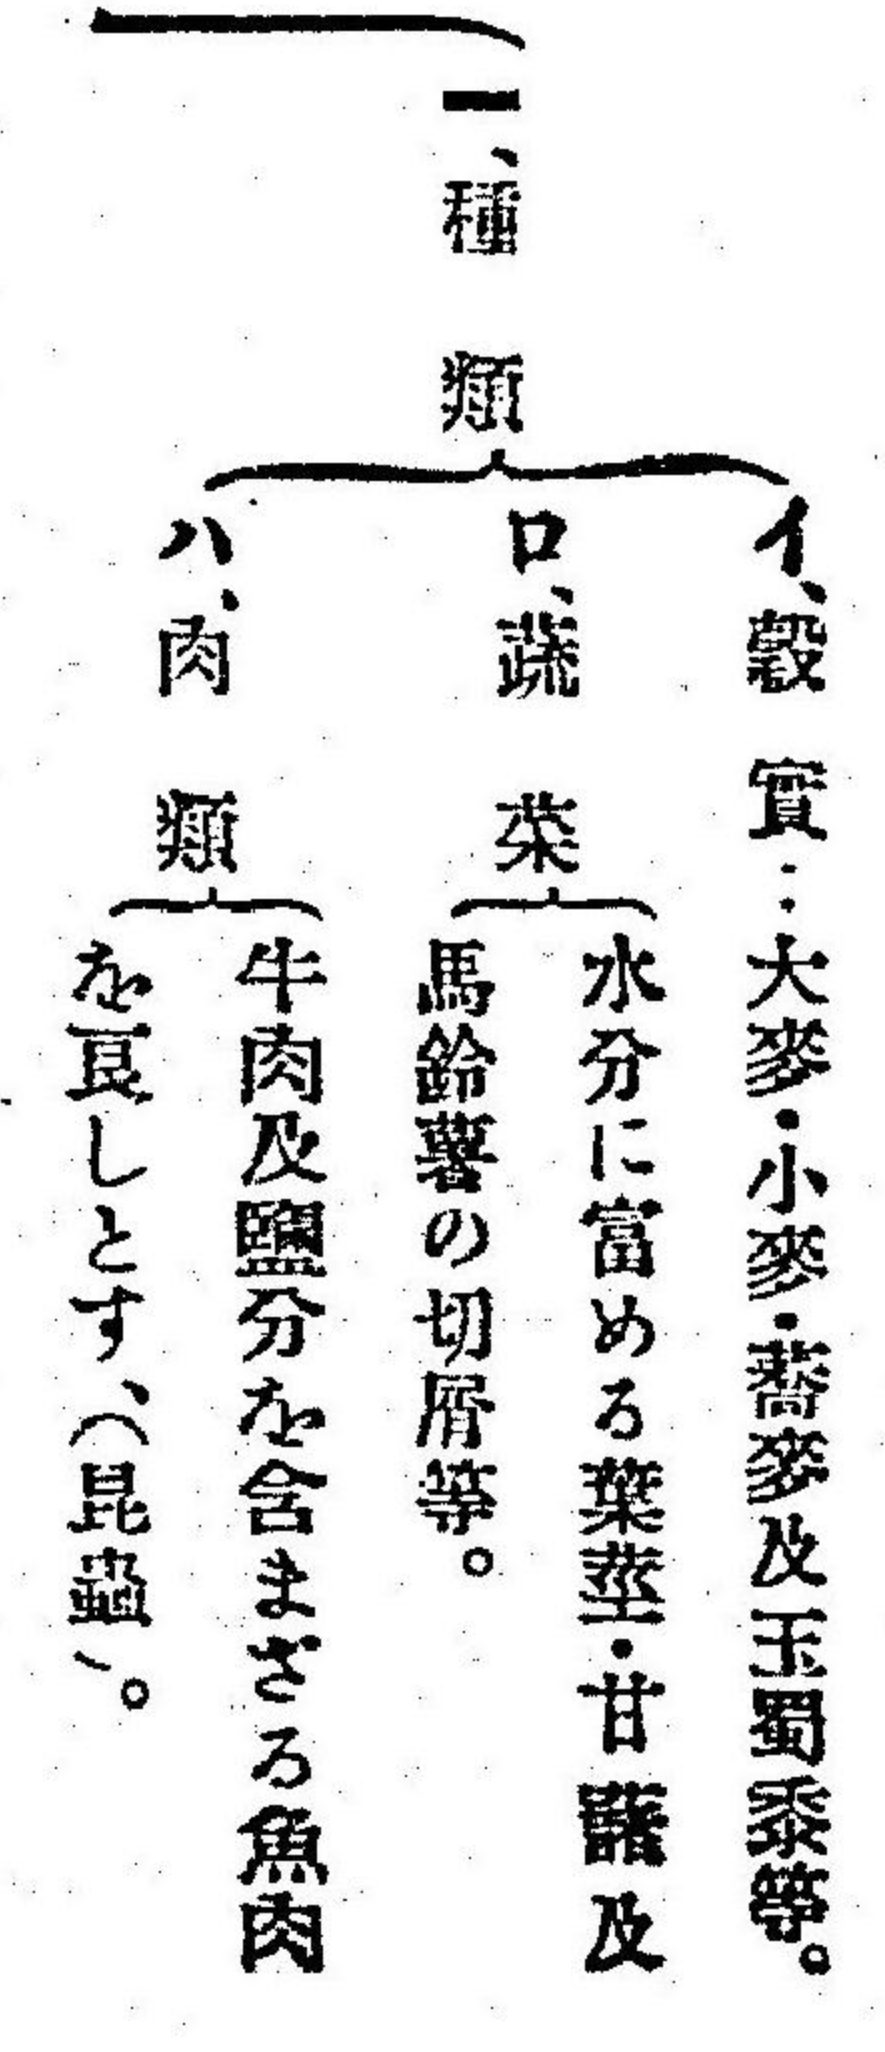 一、種類
イ、穀實…大麥・小麥・蕎麥及玉蜀黍等。
ロ、蔬菜
水分に富める葉莖・甘藷及
馬鈴薯の切屑等。
ハ、肉類
牛肉及鹽分を含まざる魚肉
を良しとす、(昆蟲)。